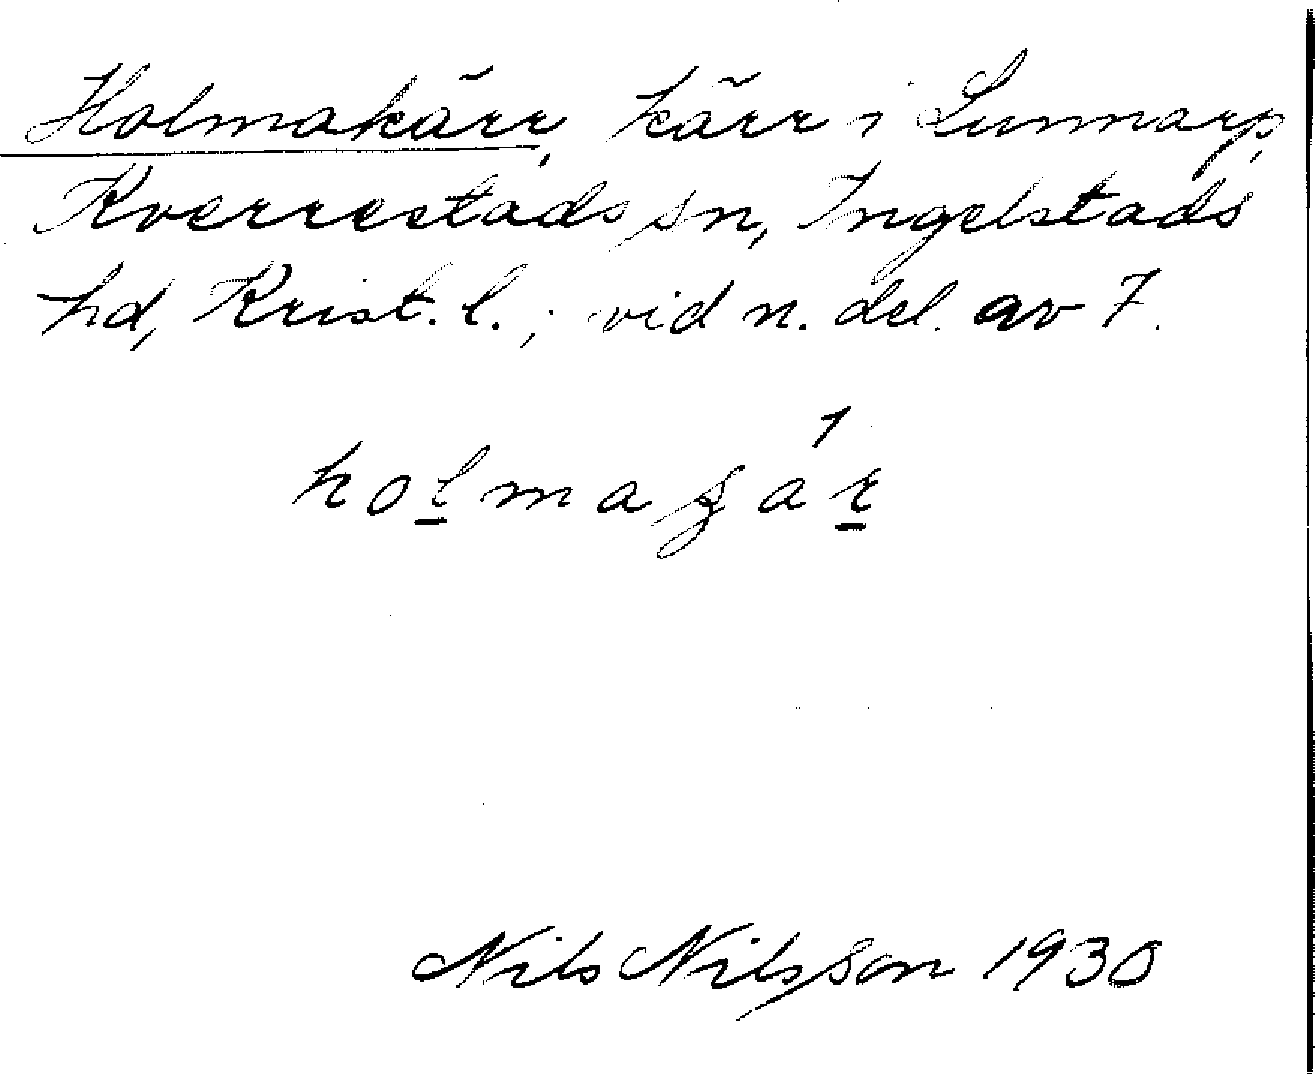 Holmakärr, kärr i Lunnarp,
Kverrestads sn, Ingelstads
hd, Krist. l.; vid n. del. av 7.
Nils Nilsson 1930